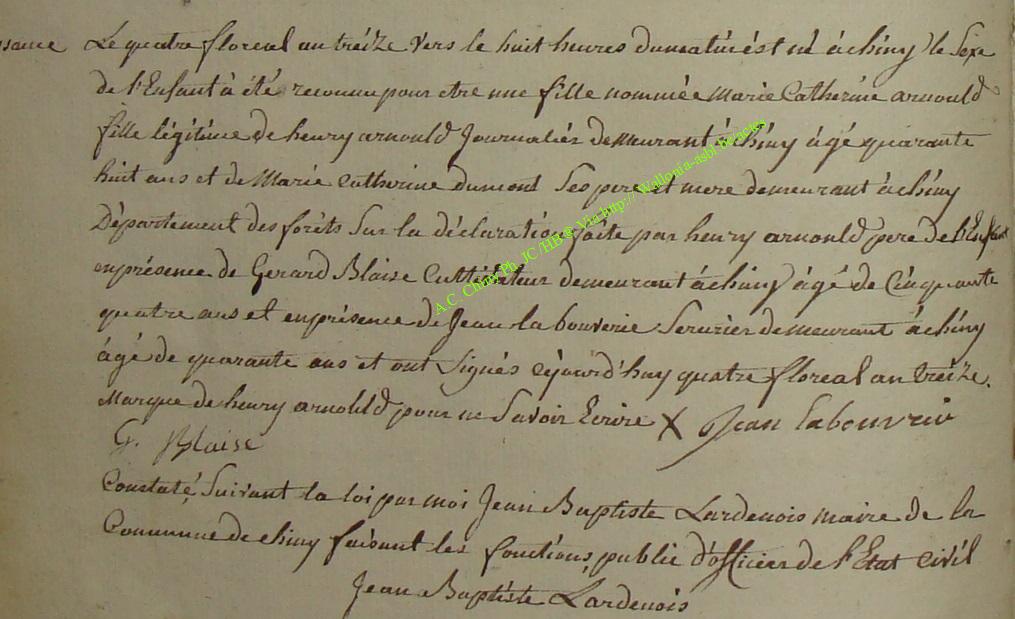 Le quatre floreal an treize vers le huit heures du matin ést né à chiny le Sexe
de l'Enfant à été reconnu pour etre une fille nommée Marie Catherine arnould
fille légitime de henry arnould Journalier demeurant à chiny âgé quarante
huit ans et de Marie Catherine dumont Ses pere et mere demeurant à chiny
Département des forêts Sur la déclaration faite par henry arnould pere de l'Enfant
en présence de Gerard Blaise Cultivateur demeurant à chiny âgé de Cinquante
quatre ans et en présence de Jean la bouverie Serurier demeurant à chiny
âgé de quarante ans et ont Signés cejourd'huy quatre floreal an treize.
Marque de henry arnould pour ne Savoir Ecrire X Jean Labouvrie
G. Blaise
Constaté Suivant la loi par moi Jean Baptiste Lardenois maire de la
Commune de chiny faisant les fonctions public d'officier de l'Etat Civil
Jean Baptiste Lardenois
A.C. Chiny Ph. JC /HB @ Via http:// Wallonia-asbl.be/actes